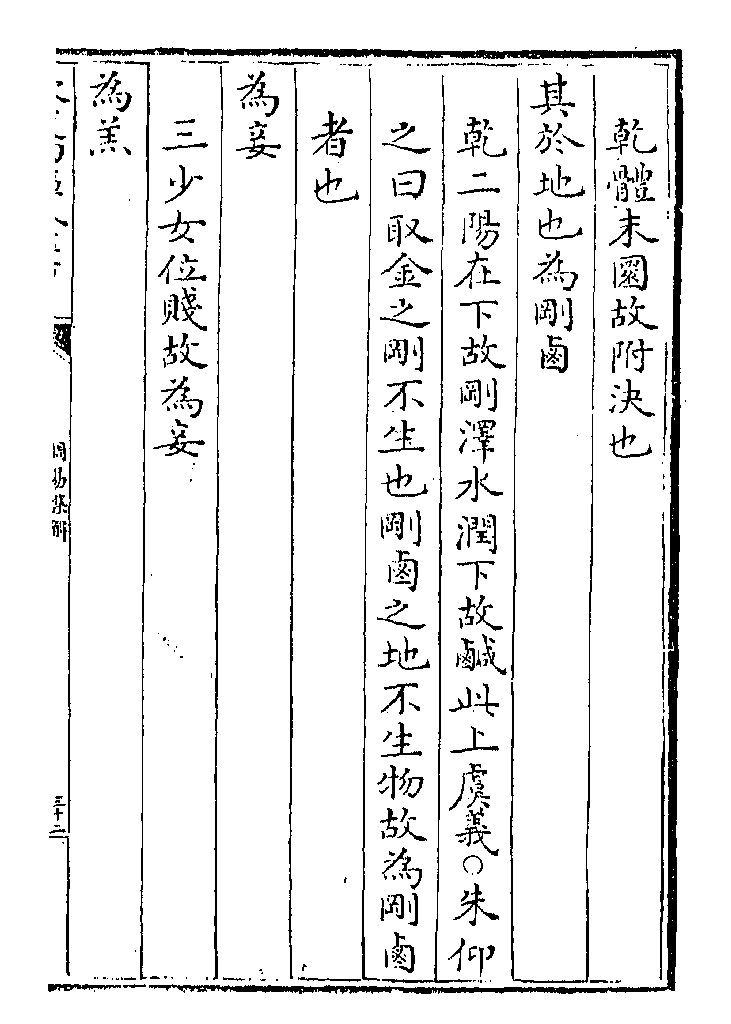 乾體未圜故附決也
其於地也為剛鹵
乾二陽在下故剛澤水潤下故鹹此上虞義○朱仰
之曰取金之剛不生也剛鹵之地不生物故為剛鹵
者也
為妾
三少女位賤故為妾
為羔
周易集解
三十二